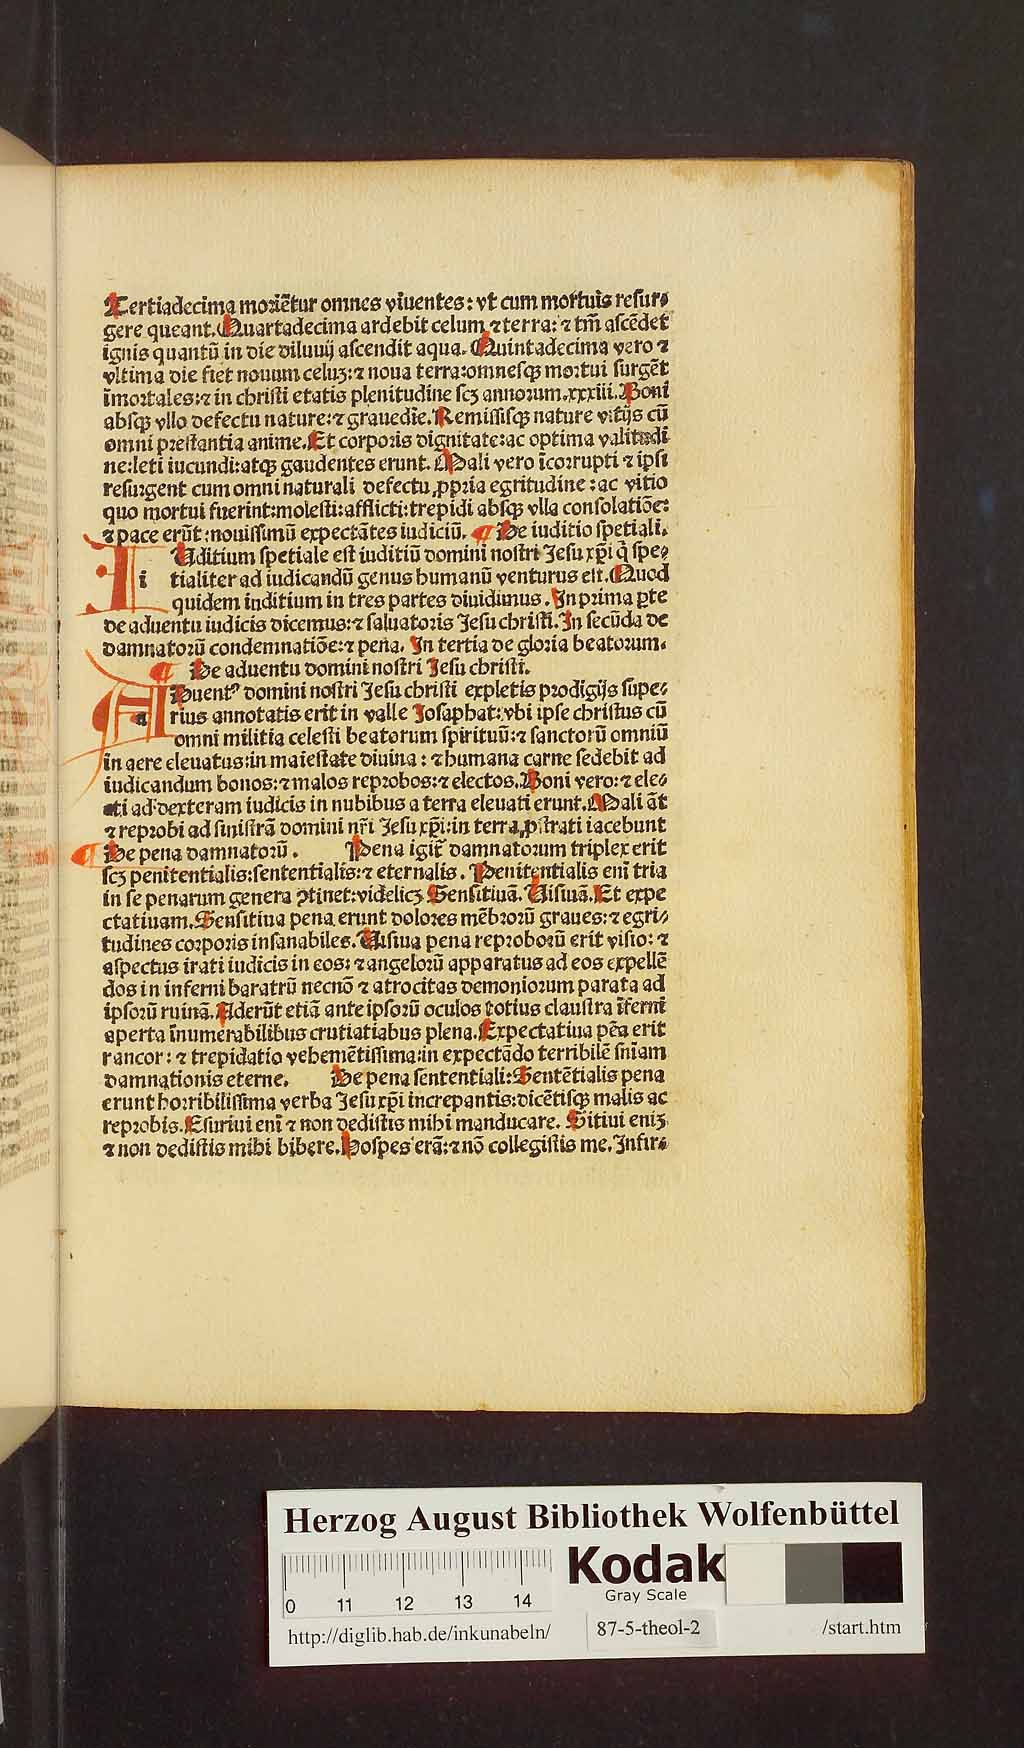 Tertiadecima moriẽtur omnes viuentes: vt cum mortuis reſur⸗
gere queant. Quartadecima ardebit celum ⁊ terra: ⁊ tm̃ aſcẽdet
ignis quantũ in die diluuij aſcendit aqua. Quintadecima vero ⁊
vltima die fiet nouum celuꝫ: ⁊ noua terra: omneſqꝫ mortui ſurgẽt
ĩmortales: ⁊ in chriſti etatis plenitudine ſcꝫ annorum. xxxiii. Boni
abſqꝫ vllo defectu nature: ⁊ grauedĩe. Remiſſiſqꝫ nature vitijs cũ
omni preſtantia anime. Et corporis dignitate: ac optima valitudi
ne: leti iucundi: atqꝫ gaudentes erunt. Mali vero ĩcorrupti ⁊ ipſi
reſurgent cum omni naturali defectu ꝓpria egritudine: ac vitio
quo mortui fuerint: moleſti: afflicti: trepidi abſqꝫ vlla conſolatiõe:
⁊ pace erũt: nouiſſimũ expectãtes iudiciũ. ¶ De iuditio ſpetiali.
I i Uditium ſpetiale eſt iuditiũ domini noſtri Jeſu xp̃i q̇ ſpe⸗
tialiter ad iudicandũ genus humanũ venturus eſt. Quod
quidem inditium in tres partes diuidimus. In prima ꝑte
de aduentu iudicis dicemus: ⁊ ſaluatoris Jeſu chriſti. In ſecũda de
damnatorũ condemnatiõe: ⁊ pena. In tertia de gloria beatorum.
¶ De aduentu domini noſtri Jeſu chriſti.
A a Duentꝰ domini noſtri Jeſu chriſti expletis prodigijs ſupe⸗
rius annotatis erit in valle Joſaphat: vbi ipſe chriſtus cũ
omni militia celeſti beatorum ſpirituũ: ⁊ ſanctorũ omniũ
in aere eleuatus: in maieſtate diuina: ⁊ humana carne ſedebit ad
iudicandum bonos: ⁊ malos reprobos: ⁊ electos. Boni vero: ⁊ ele⸗
cti ad dexteram iudicis in nubibus a terra eleuati erunt. Mali ãt
⁊ reprobi ad ſiniſtrã domini nr̃i Jeſu xp̃i: in terra ꝓſtrati iacebunt
¶ De pena damnatorũ. Pena igit̃ damnatorum triplex erit
ſcꝫ penitentialis: ſententialis: ⁊ eternalis. Penitentialis eni᷑ tria
in ſe penarum genera ↄtinet: videlicꝫ Senſitiuã. Uiſiuã. Et expe
ctatiuam. Senſitiua pena erunt dolores mẽbrorũ graues: ⁊ egri⸗
tudines corporis inſanabiles. Uiſiua pena reproborũ erit viſio: ⁊
aſpectus irati iudicis in eos: ⁊ angelorũ apparatus ad eos expellẽ
dos in inferni baratrũ necnõ ⁊ atrocitas demoniorum parata ad
ipſorũ ruinã. Aderũt etiã ante ipſorũ oculos totius clauſtra ĩferni
aperta ĩnumerabilibus crutiatiabus plena. Expectatiua pẽa erit
rancor: ⁊ trepidatio vehemẽtiſſima: in expectãdo terribilẽ ſnĩam
damnationis eterne. De pena ſententiali: Sentẽtialis pena
erunt horribiliſſima verba Jeſu xp̃i increpantis: dicẽtiſqꝫ malis ac
reprobis. Eſuriui eni᷑ ⁊ non dediſtis mihi manducare. Sitiui eniꝫ
⁊ non dediſtis mihi bibere. Hoſpes erã: ⁊ nõ collegiſtis me. Infir⸗
Herzog August Bibliothek Wolfenbüttel
Kodak
Gray Scale
0 11 12 13 14
http://diglib.hab.de/inkunabeln/ 87-5-theol-2 /start.htm